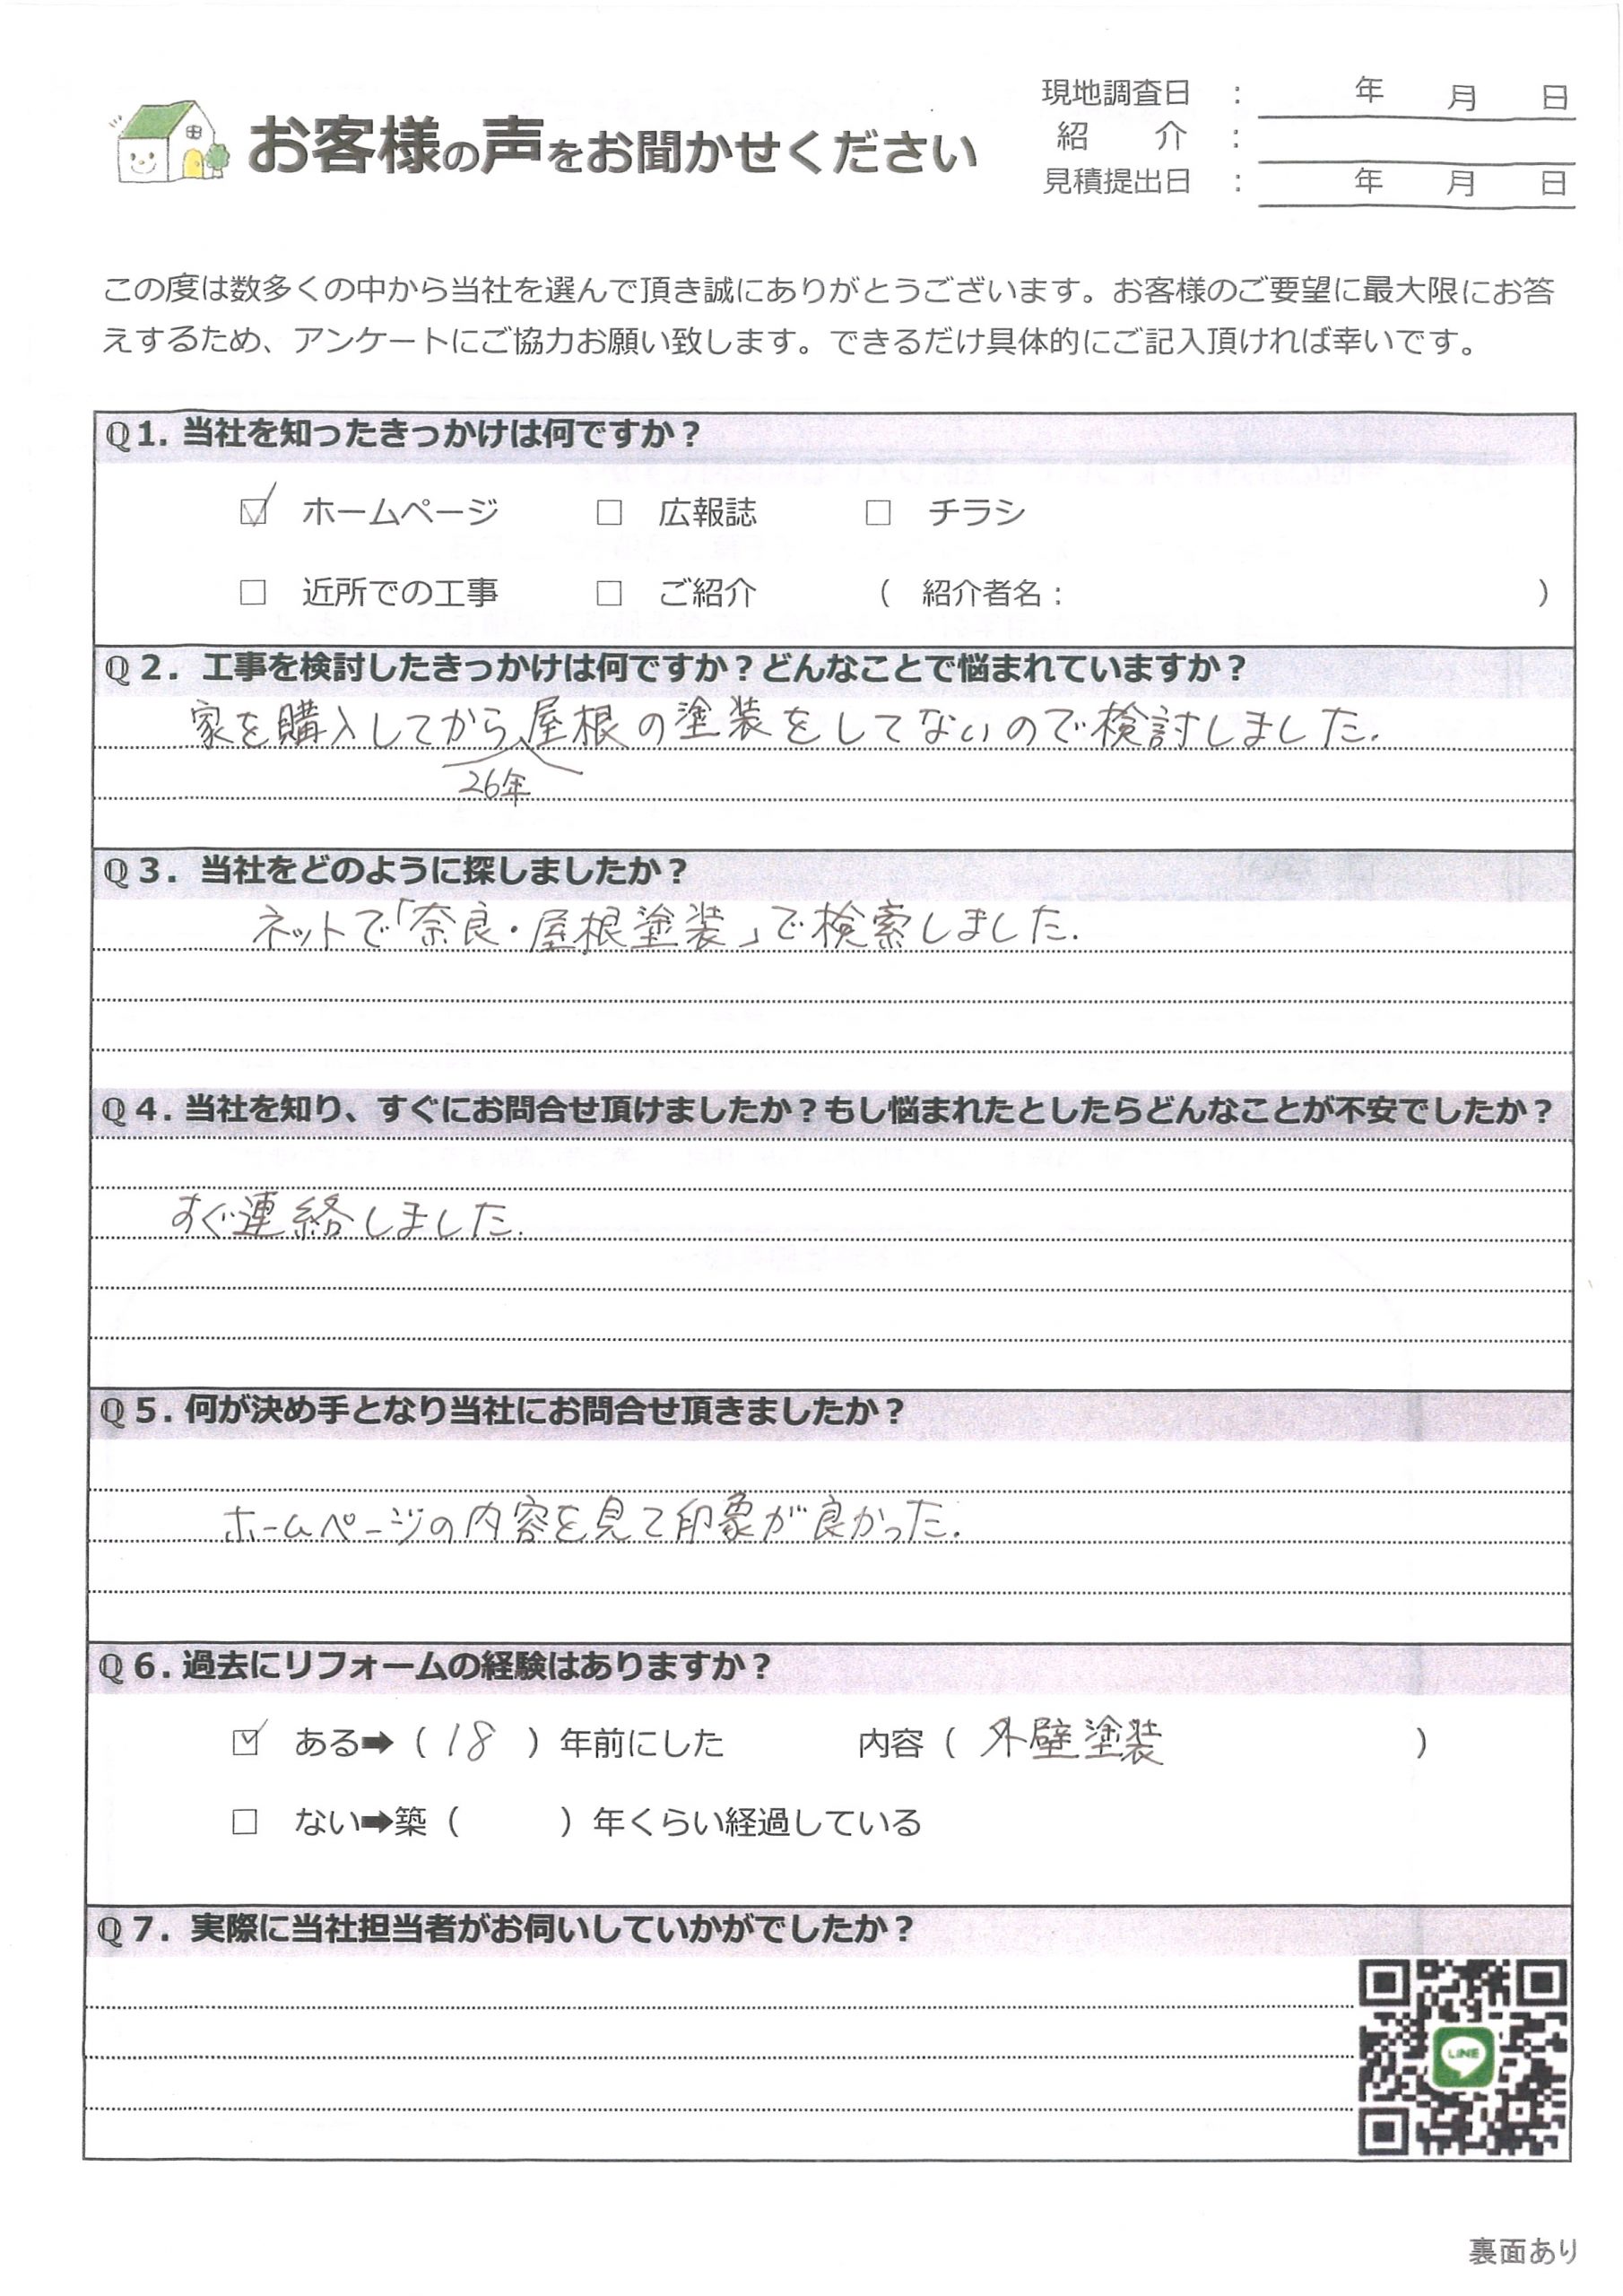 お客様の声をお聞かせください
現地調査日 : 年 月 日
紹 介 :
見積提出日 : 年 月 日
この度は数多くの中から当社を選んで頂き誠にありがとうございます。お客様のご要望に最大限にお答
えするため、アンケートにご協力お願い致します。できるだけ具体的にご記入頂ければ幸いです。
Q1. 当社を知ったきっかけは何ですか？
☑ ホームページ □ 広報誌 □ チラシ
□ 近所での工事 □ ご紹介 ( 紹介者名： )
Q2. 工事を検討したきっかけは何ですか？どんなことで悩まれていますか？
家を購入してから屋根の塗装をしてないので検討しました.
26年
Q3. 当社をどのように探しましたか？
ネットで「奈良・屋根塗装」で検索しました.
Q4. 当社を知り、すぐにお問合せ頂けましたか？もし悩まれたとしたらどんなことが不安でしたか？
すぐ連絡しました.
Q5. 何が決め手となり当社にお問合せ頂きましたか？
ホームページの内容を見て印象が良かった.
Q6. 過去にリフォームの経験はありますか？
☑ ある➡( 18 ) 年前にした 内容 ( 外壁塗装 )
□ ない➡築 ( ) 年くらい経過している
Q7. 実際に当社担当者がお伺いしていかがでしたか？
LINE
裏面あり